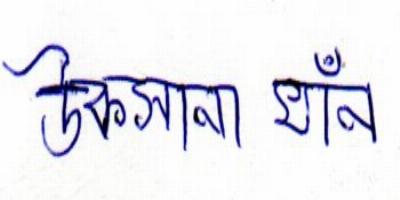 উকসানা খাঁন